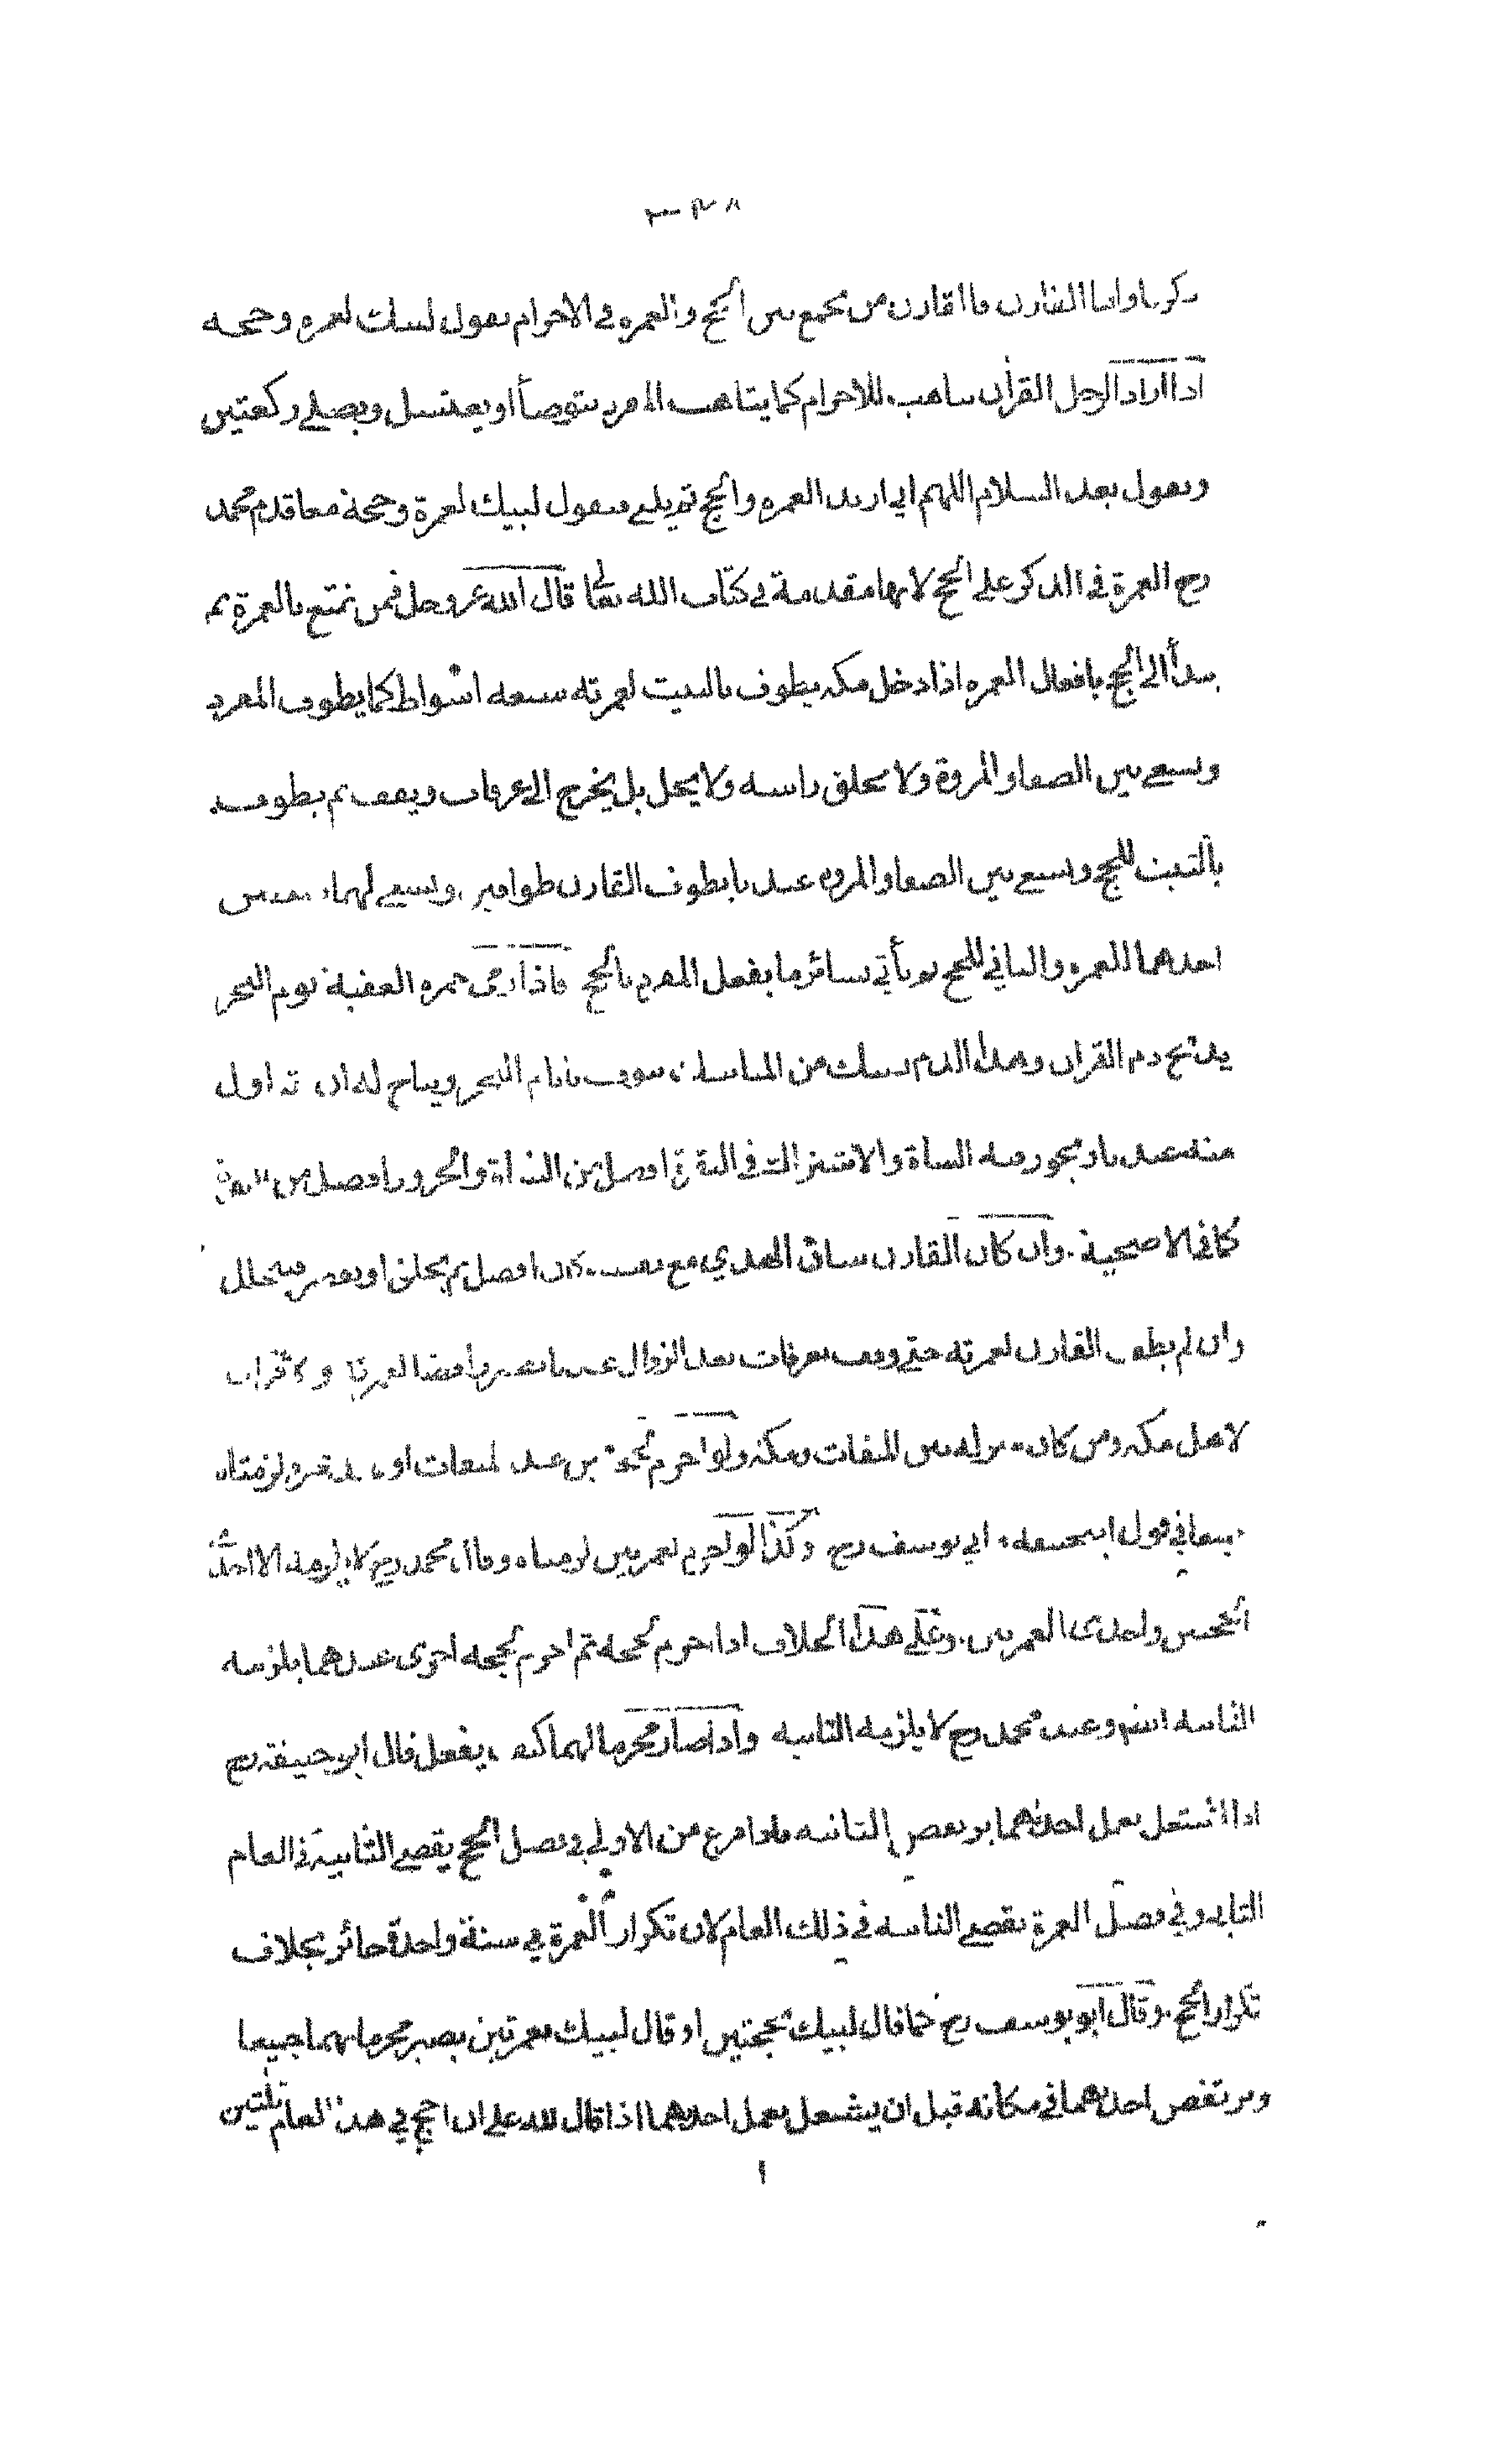 ذكرنا واما القارن فالقارن من يجمع بين الحج والعمرة في الاحرام يقول لبيك لعمرة وحجة
اذا اراد الرجل القران يتاهب للاحرام كما يتاهب المفرد يتوضأ او يغتسل ويصلي ركعتين
ويقول بعد السلام اللهم اني اريد العمرة والحج ثم يلبي فيقول لبيك لعمرة وحجة معا قدم محمد
رح العمرة في الذكر على الحج لانها مقدمة في كتاب الله تعالى قال الله عز وجل فمن تمتع بالعمرة ثم
يبدأ الى الحج بافعال العمرة اذا دخل مكة يطوف بالبيت لعمرته سبعة اشواط كما يطوف المفرد
ويسعى بين الصفا والمروة ولا يحلق راسه ولا يحل بل يخرج الى عرفات ويقف ثم يطوف
بالبيت للحج ويسعى بين الصفا والمروة عندنا يطوف القارن طوافين ويسعى لهما سعيين
احدهما للعمرة والثاني للحج ثم يأتي بسائر ما يفعل المفرد بالحج فاذا رمى جمرة العقبة يوم النحر
يذبح دم القران وهذا الدم نسك من المناسك يتوقت بايام النحر ويباح له ان تناول
منه عندنا ويجوز فيه الشاة والاشتراك في البقرة افضل من الشاة والجزور افضل من البقرة
كما في الاضحية وان كان القارن ساق الهدي مع نفسه كان افضل ثم يحلق او يقصر فيتحلل
وان لم يطف القارن لعمرته حتى وقف بعرفات بعد الزوال عندنا يصير رافضا لعمرته ولا قران
لاهل مكة ومن كان منزله بين الميقات ومكة ولو احرم بحجتين عند الميقات او لزمتاه
جميعا في قول ابي حنيفة وابي يوسف رح وكذا لو احرم بعمرتين لزمتاه وقال محمد رح لا يلزمه الا احدى
الحجتين واحدى العمرتين وعلى هذا الخلاف اذا احرم بحجة ثم احرم بحجة اخرى عندهما يلزمه
الثانية وعند محمد رح لا يلزمه الثانية واذا صار محرما لهما يفعل قال ابو حنيفة رح
اذا اشتغل بعمل احديهما يرتفض الثانية فاذا فرغ من الاولى في فصل الحج يقضي الثانية في العام
الثاني وفي فصل العمرة يقضي الثانية في ذلك العام لان تكرار العمرة في سنة واحدة جائز بخلاف
تكرار الحج وقال ابو يوسف رح كما قال لبيك بحجتين او قال لبيك بعمرتين يصير محرما بهما جميعا
ويرتفض احديهما في مكانه قبل ان يشتغل بعمل احديهما اذا قال لله علي ان احج في هذا العام ثلثين